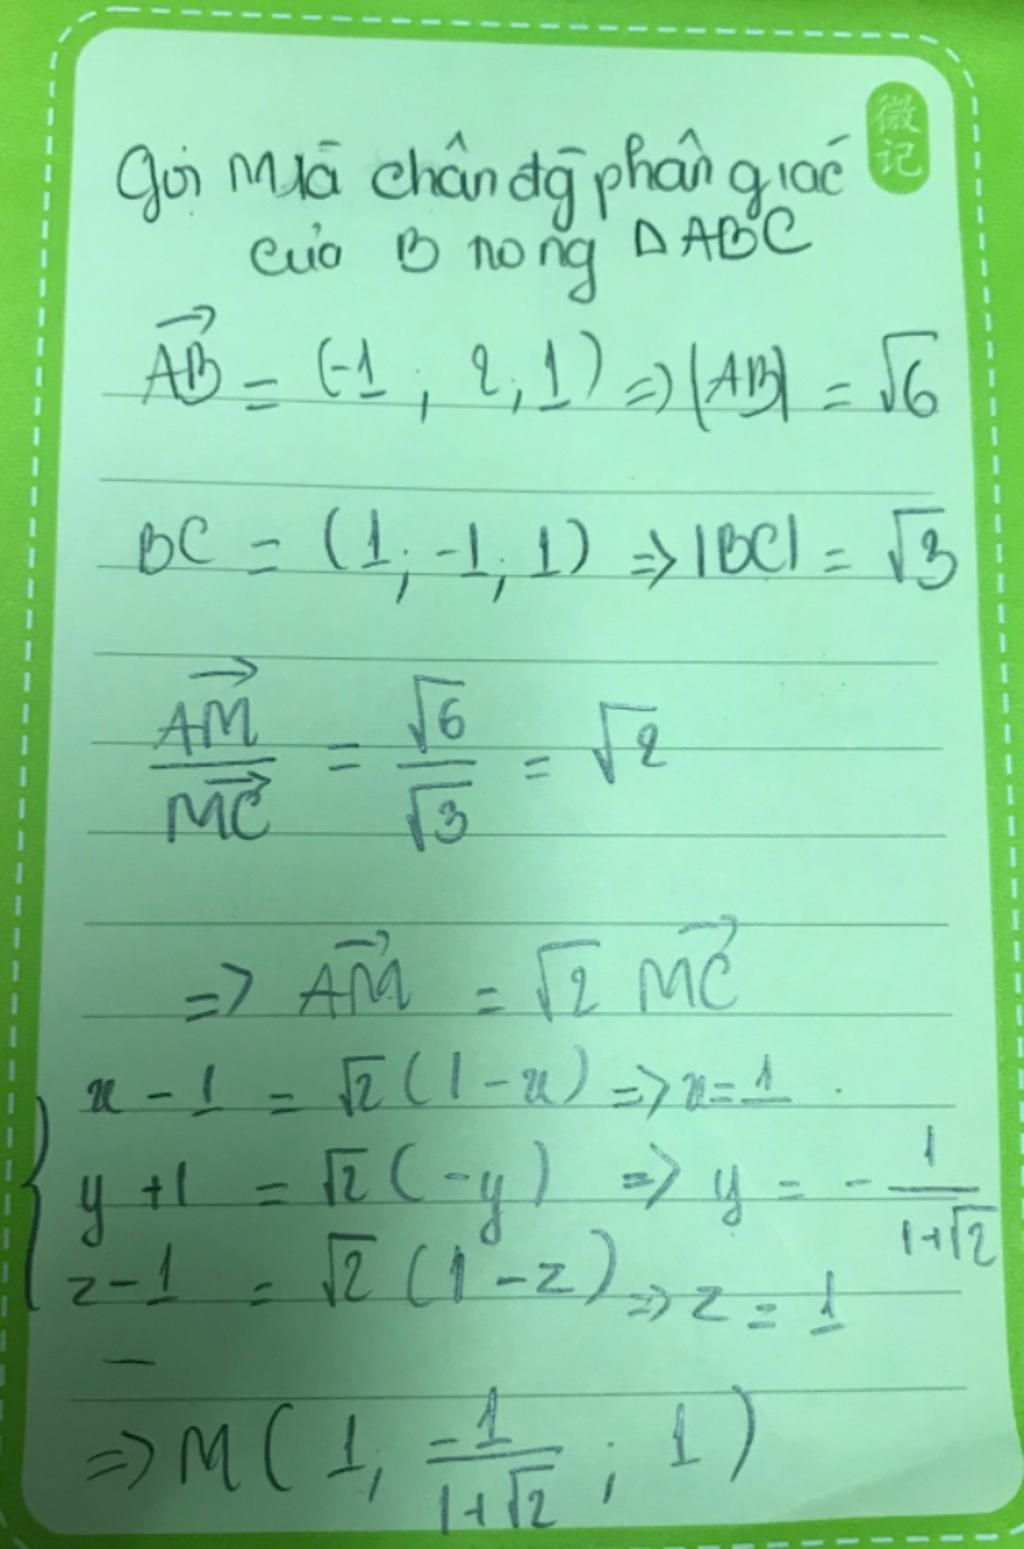 微
记
Gọi M là chân đg phân giác
của B trong ΔABC
$\overrightarrow{AB} = (-1; 2; 1) \Rightarrow |AB| = \sqrt{6}$
$BC = (1; -1; 1) \Rightarrow |BC| = \sqrt{3}$
$\frac{\overrightarrow{AM}}{\overrightarrow{MC}} = \frac{\sqrt{6}}{\sqrt{3}} = \sqrt{2}$
$\Rightarrow \overrightarrow{AM} = \sqrt{2}\,\overrightarrow{MC}$
$x - 1 = \sqrt{2}(1 - x) \Rightarrow x = 1$
$y + 1 = \sqrt{2}(-y) \Rightarrow y = -\frac{1}{1+\sqrt{2}}$
$z - 1 = \sqrt{2}(1 - z) \Rightarrow z = 1$
$\Rightarrow M(1; \frac{-1}{1+\sqrt{2}}; 1)$